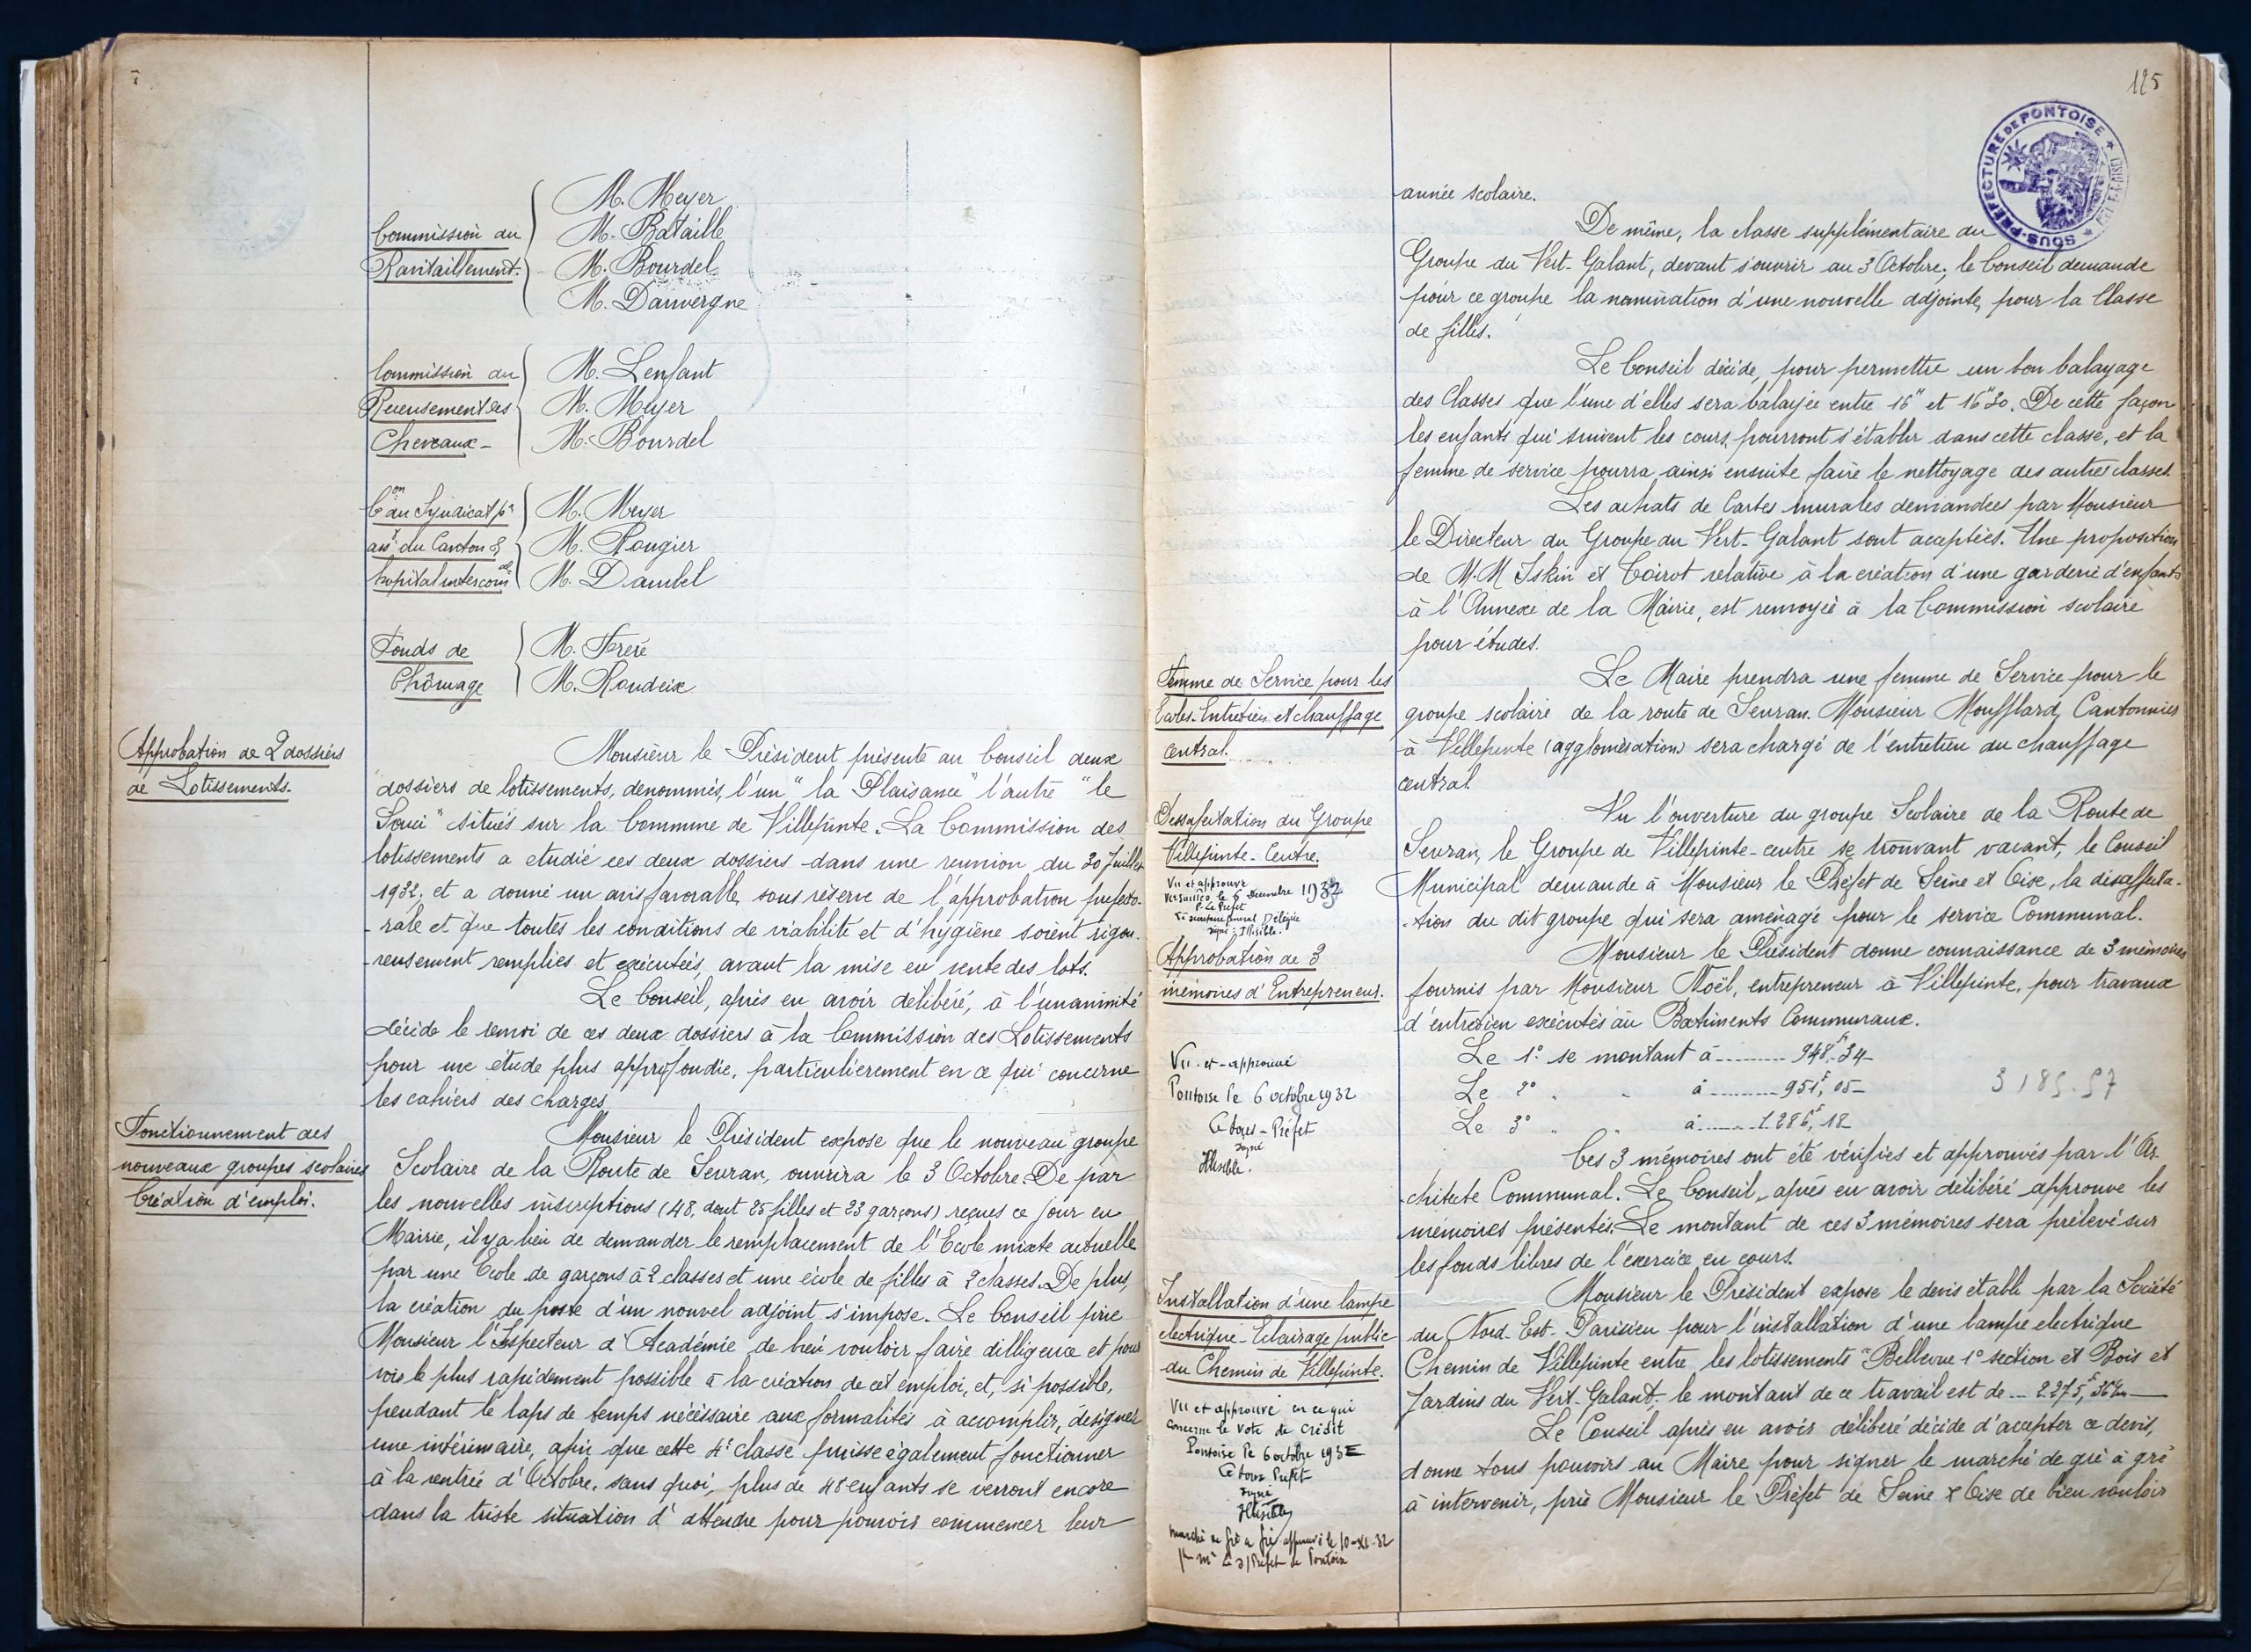 Commission du
Ravitaillement.
M. Meyer
M. Bataille
M. Bourdel
M. Dauvergne
Commission du
Recensement des
Chevaux -
M. Lenfant
M. Meyer
M. Bourdel
Con du Syndicat pr
asst du Canton &
hopital intercomal
M. Meyer
M. Rougier
M. Daubel
Fonds de
Chômage
M. Frère
M. Roudeix
Approbation de 2 dossiers
de Lotissements.
Monsieur le Président présente au Conseil deux
dossiers de lotissements, dénommés, l'un "la Plaisance" l'autre "le
Souci" situés sur la Commune de Villepinte. La Commission des
lotissements a etudié ces deux dossiers dans une reunion du 20 Juillet
1932, et a donné un avis favorable, sous réserve de l'approbation prefecto-
-rale et que toutes les conditions de viabilité et d'hygiène soient rigou-
-reusement remplies et exécutées, avant la mise en vente des lots.
Le Conseil, après en avoir délibéré, à l'unanimité
décide le renvoi de ces deux dossiers à la Commission des Lotissements
pour une étude plus approfondie, particulièrement en ce qui concerne
les cahiers des charges
Fonctionnement des
nouveaux groupes scolaires
Création d'emploi.
Monsieur le Président expose que le nouveau groupe
Scolaire de la Route de Sevran, ouvrira le 3 Octobre. De par
les nouvelles inscriptions (48, dont 25 filles et 23 garçons) reçues ce jour en
Mairie, il y a lieu de demander le remplacement de l'Ecole mixte actuelle
par une Ecole de garçons à 2 classes et une école de filles à 2 classes. De plus,
la création du poste d'un nouvel adjoint s'impose. Le Conseil prie
Monsieur l'Inspecteur d'Académie de bien vouloir faire dilligence et pour
voir le plus rapidement possible à la création de cet emploi, et, si possible,
pendant le laps de temps nécéssaire aux formalités à accomplir, désigner
une intérimaire, afin que cette 4e classe puisse également fonctionner
à la rentrée d'Octobre, sans quoi, plus de 48 enfants se verront encore
dans la triste situation d'attendre pour pouvoir commencer leur
125
SOUS-PREFECTURE DE PONTOISE
année scolaire.
De même, la classe supplémentaire du
Groupe du Vert-Galant, devant s'ouvrir au 3 Octobre, le Conseil demande
pour ce groupe la nomination d'une nouvelle adjointe, pour la Classe
de filles.
Le Conseil décide, pour permettre un bon balayage
des Classes que l'une d'elles sera balayée entre 16h et 16h30. De cette façon
les enfants qui suivent les cours, pourront s'établir dans cette classe, et la
femme de service pourra ainsi ensuite faire le nettoyage des autres classes.
Les achats de Cartes murales demandées par Monsieur
le Directeur du Groupe du Vert-Galant sont acceptées. Une proposition
de M.M Iskin et Coirot relative à la création d'une garderie d'enfants
à l'Annexe de la Mairie, est renvoyée à la Commission scolaire
pour études.
Femme de Service pour les
Ecoles. Entretien et chauffage
central.
Le Maire prendra une femme de Service pour le
groupe scolaire de la route de Sevran. Monsieur Moufflard, Cantonnier
à Villepinte (agglomération) sera chargé de l'entretien du chauffage
central.
Desaffectation du Groupe
Villepinte-Centre.
Vu et approuvé
Versailles, le 6 Décembre 1932
P. Le Préfet
Le Secrétaire Général Délégué
signé: Illisible.
Vu l'ouverture du groupe Scolaire de la Route de
Sevran, le Groupe de Villepinte-centre se trouvant vacant, le Conseil
Municipal demande à Monsieur le Préfet de Seine et Oise, la désaffecta-
-tion du dit groupe qui sera aménagé pour le service Communal.
Approbation de 3
mémoires d'Entrepreneur.
Monsieur le Président donne connaissance de 3 mémoires
fournis par Monsieur Noël, entrepreneur à Villepinte, pour travaux
d'entretien exécutés au Batiments Communaux.
Le 1° se montant à ........ 948f,34
Le 2° " " à ........ 951f,05
Le 3° " " à ........ 1.286f,18
3185.57
Vu et approuvé
Pontoise le 6 octobre 1932
Le Sous-Préfet
Signé
Illisible.
Ces 3 mémoires ont été vérifiés et approuvés par l'Ar-
chitecte Communal. Le Conseil, après en avoir délibéré approuve les
mémoires présentés. Le montant de ces 3 mémoires sera prélevé sur
les fonds libres de l'exercice en cours.
Installation d'une lampe
electrique - Eclairage public
du Chemin de Villepinte.
Vu et approuvé en ce qui
concerne le vote de crédit
Pontoise le 6 octobre 1932
Le Sous Préfet
Signé
Illisible
marché de gré à gré approuvé le 10-XI-32
par Mr Le S/Préfet de Pontoise
Monsieur le Président expose le devis etabli par la Société
du Nord-Est-Parisien pour l'installation d'une lampe electrique
Chemin de Villepinte entre les lotissements "Bellevue 1° section et Bois et
Jardins du Vert-Galant, le montant de ce travail est de ... 2.275f,36
Le Conseil après en avoir délibéré décide d'accepter ce devis,
donne tous pouvoirs au Maire pour signer le marché de gré à gré
à intervenir, prie Monsieur le Préfet de Seine & Oise de bien vouloir